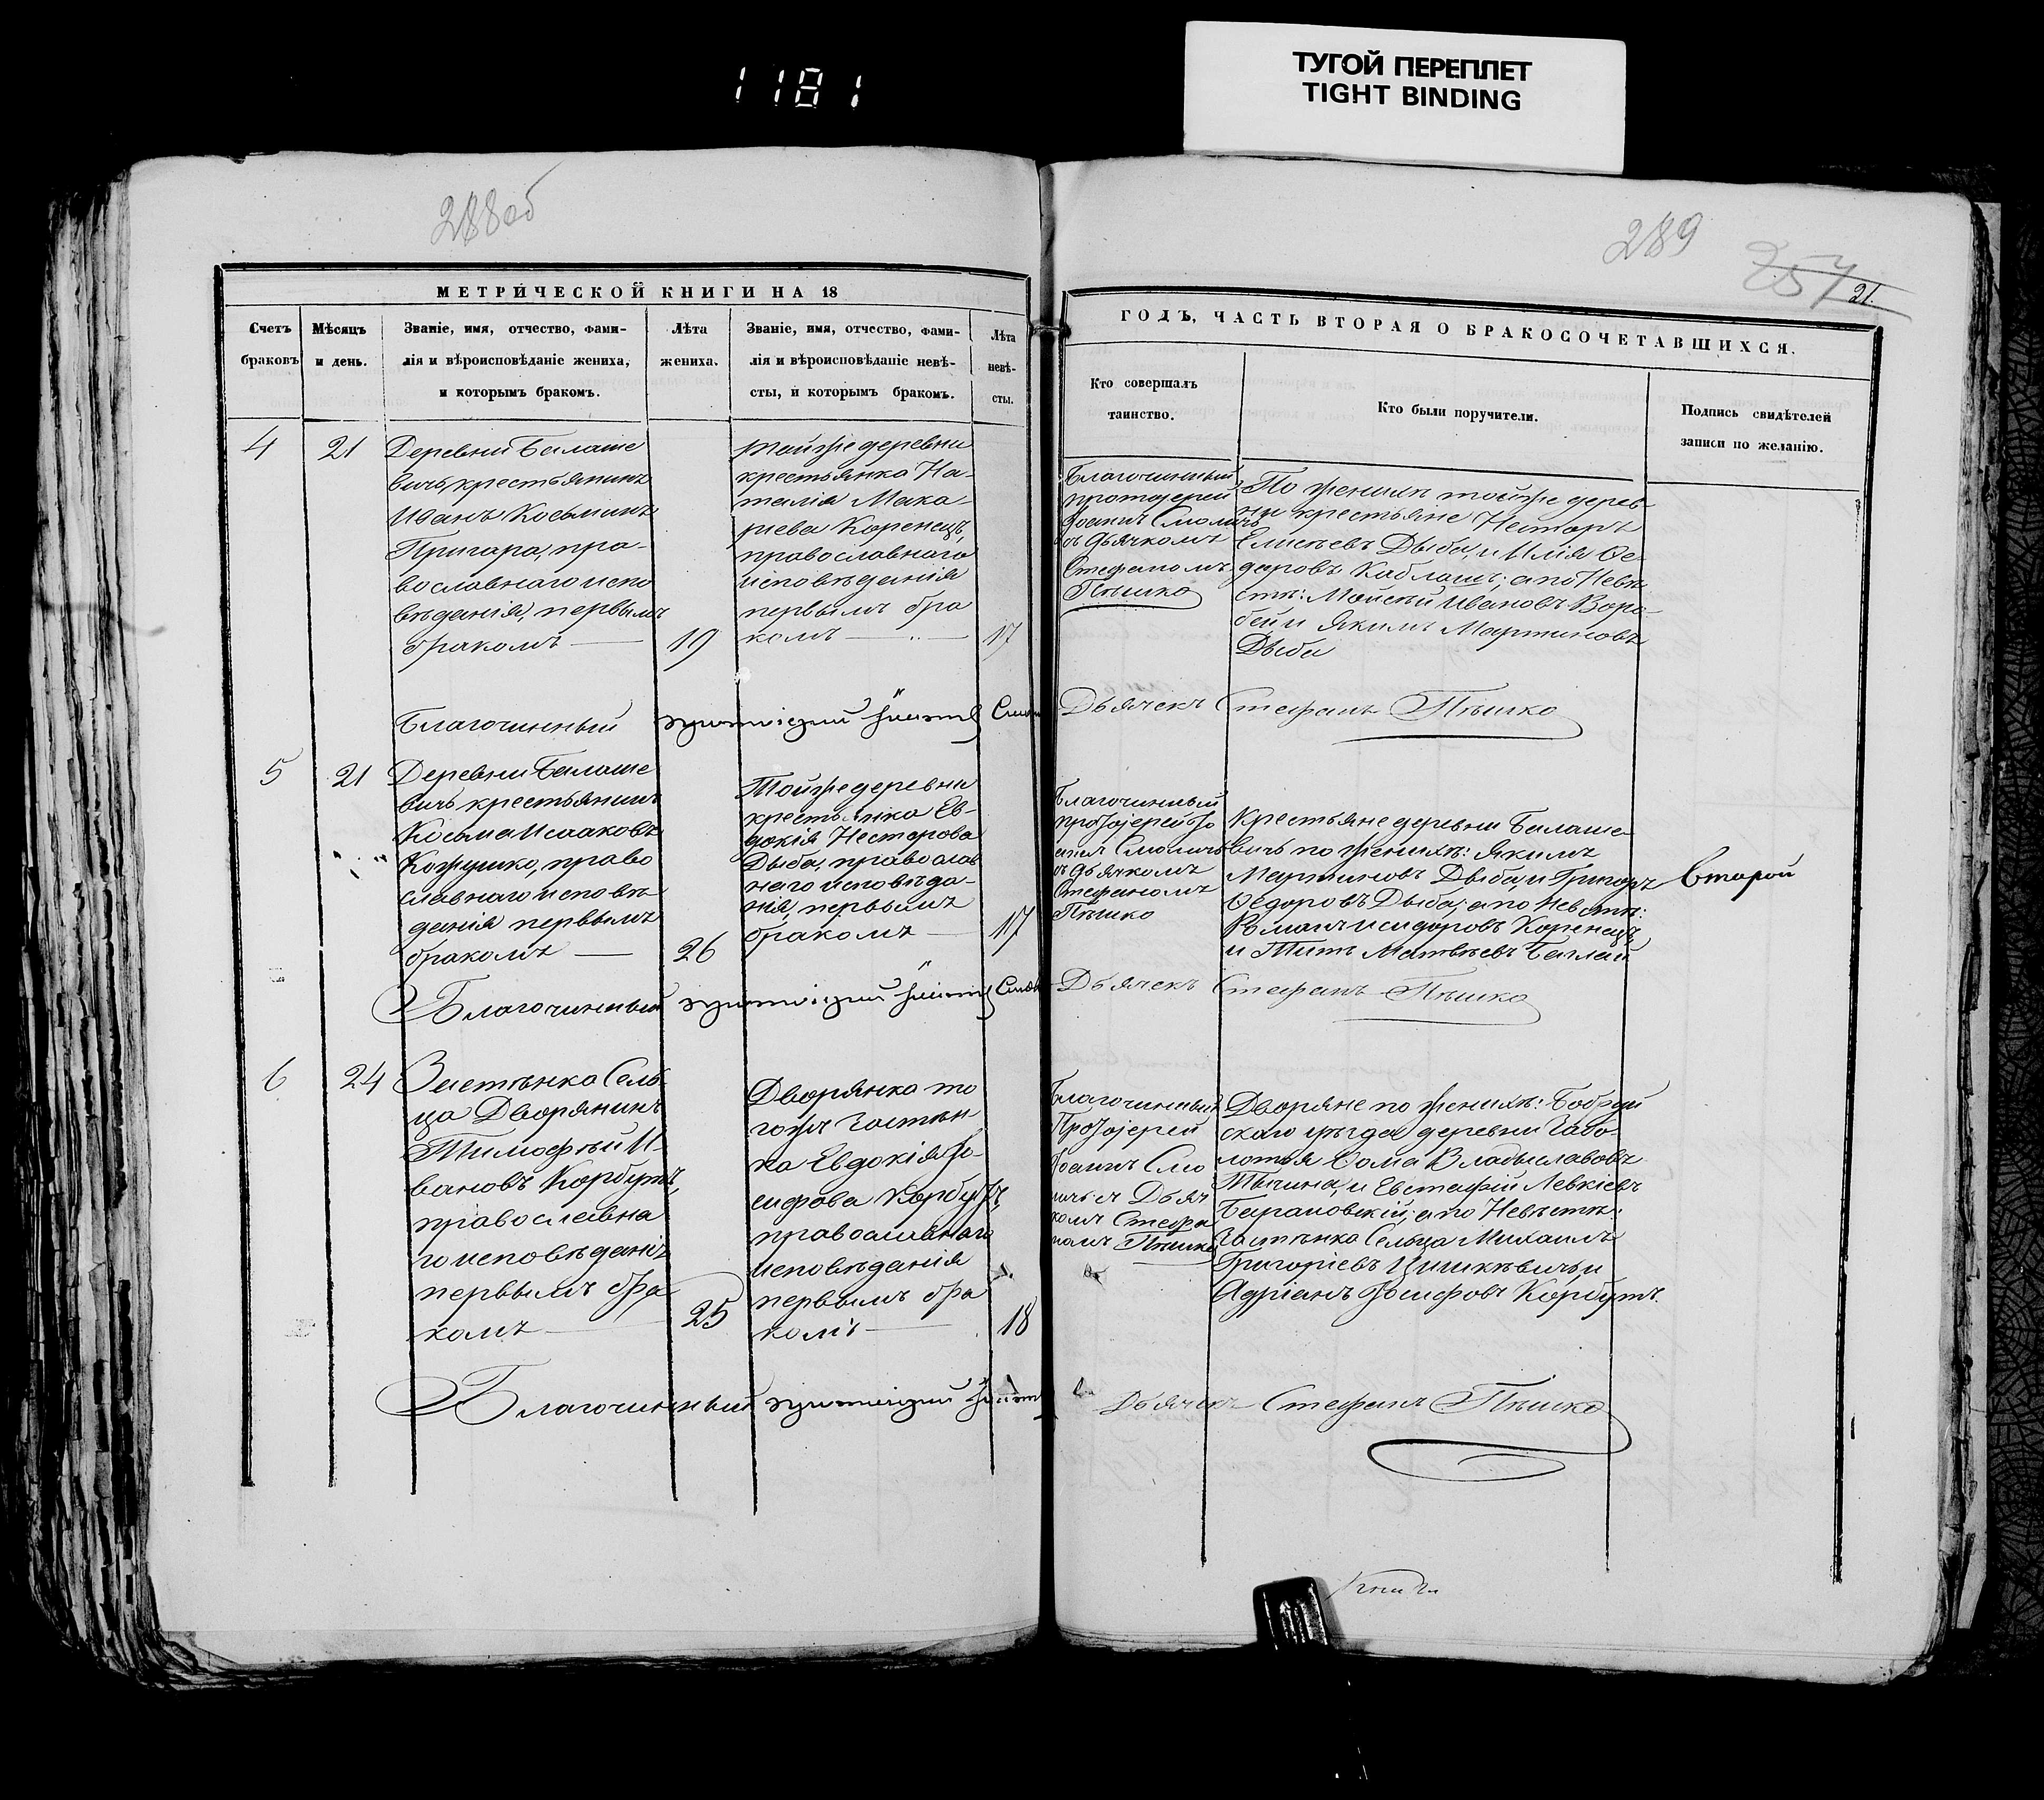 1181
ТУГОЙ ПЕРЕПЛЕТ
TIGHT BINDING
288об
289
257
21.
МЕТРИЧЕСКОЙ КНИГИ НА 18
Счетъ браковъ
Мѣсяцъ и день.
Званіе, имя, отчество, фами-
лія и вѣроисповѣданіе жениха,
и которымъ бракомъ.
Лѣта жениха.
Званіе, имя, отчество, фами-
лія и вѣроисповѣданіе невѣ-
сты, и которымъ бракомъ.
Лѣта невѣ-
сты.
ГОДЪ, ЧАСТЬ ВТОРАЯ О БРАКОСОЧЕТАВШИХСЯ.
Кто совершалъ
таинство.
Кто были поручители.
Подпись свидѣтелей
записи по желанію.
4
21
Деревни Балаше
вичъ, крестьянинъ
Иванъ Косьминъ
Пригара, пра-
вославнаго испо
вѣданія, первымъ
бракомъ
19
тойже деревни
крестьянка На-
талія Мака-
риева Коренецъ,
православнаго
исповѣданія
первымъ бра
комъ
17
Благочинный
протоіерей
Іоаннъ Смоличъ
съ дьячкомъ
Стефаномъ
Пѣшко
По женихѣ тойже дерев-
ни крестьяне Несторъ
Елисѣевъ Дыба, и Илія Ѳе-
доровъ Каблашъ; а по Невѣ
стѣ: Мойсѣй Ивановъ Воро-
бей и Якимъ Мартиновъ
Дыба
Благочинный
Дьячекъ Стефанъ Пѣшко
5
21
Деревни Балаше
вичъ крестьянинъ
Косьма Исааковъ
Кожушко, право
славнаго исповѣ-
данія первымъ
бракомъ
26
Тойже деревни
крестьянка Ев-
докія Нестерова
Дыба, православ
наго исповѣда-
нія, первымъ
бракомъ
17
Благочинный
протоіерей Іо
аннъ Смоличъ
съ дьячкомъ
Стефаномъ
Пѣшко
Крестьяне деревни Балаше
вичъ по женихѣ: Якимъ
Мартиновъ Дыба, и Григоръ
Ѳедоровъ Дыба; а по Невѣстѣ:
Романъ Исидоровъ Коренецъ,
и Титъ Матвѣевъ Баглай
Второй
Благочинный
Дьячекъ Стефанъ Пѣшко
6
24
Застѣнка Сель-
ца Дворянинъ
Тимофѣй И-
вановъ Корбутъ,
православна
го исповѣданія
первымъ бра
комъ
25
Дворянка то
гожъ Застѣн
ка Евдокія Іо-
сифова Корбутъ,
православнаго
исповѣданія
первымъ бра
комъ
18
Благочинный
Протоіерей
Іоаннъ Смо
личъ съ Дьяч
комъ Стефа
номъ Пѣшко
Дворяне по женихѣ: Бобруй
скаго уѣзда деревни Забо-
лотья Ѳома Владыславовъ
Тычина, и Евстафій Левкіевъ
Барановскій; а по Невѣстѣ:
Застѣнка Сельца Михаилъ
Григоріевъ Цишкѣвичъ, и
Адріанъ Іосифовъ Корбутъ.
Благочинный
Дьячекъ Стефанъ Пѣшко